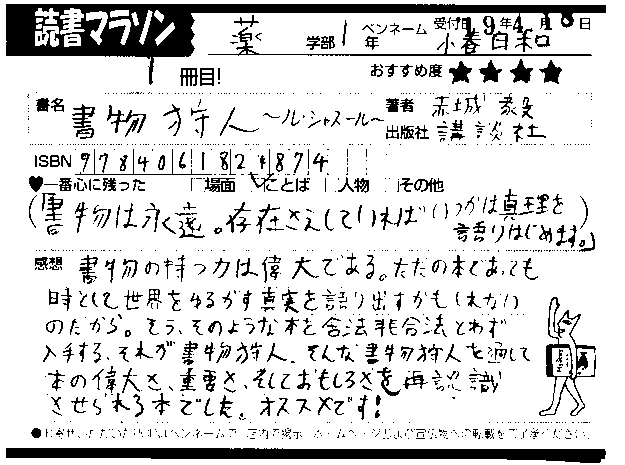 読書マラソン
受付日 19年4月18日
薬 学部 1 年 ペンネーム 小春日和
1 冊目! おすすめ度 ★★★★
書名 書物狩人 ~ル・シャスール~
著者 赤城 毅
出版社 講談社
ISBN 9784061824874
♥一番心に残った □場面 ☑ことば □人物 □その他
(「書物は永遠。存在さえしていればいつかは真理を
語りはじめます。」
感想 書物の持つ力は偉大である。ただの本であっても
時として世界をゆるがす真実を語り出すかもしれない
のだから。そう、そのような本を合法非合法とわず
入手する、それが書物狩人。そんな書物狩人を通して
本の偉大さ、重要さ、そしておもしろさを再認識
させられる本でした。オススメです!